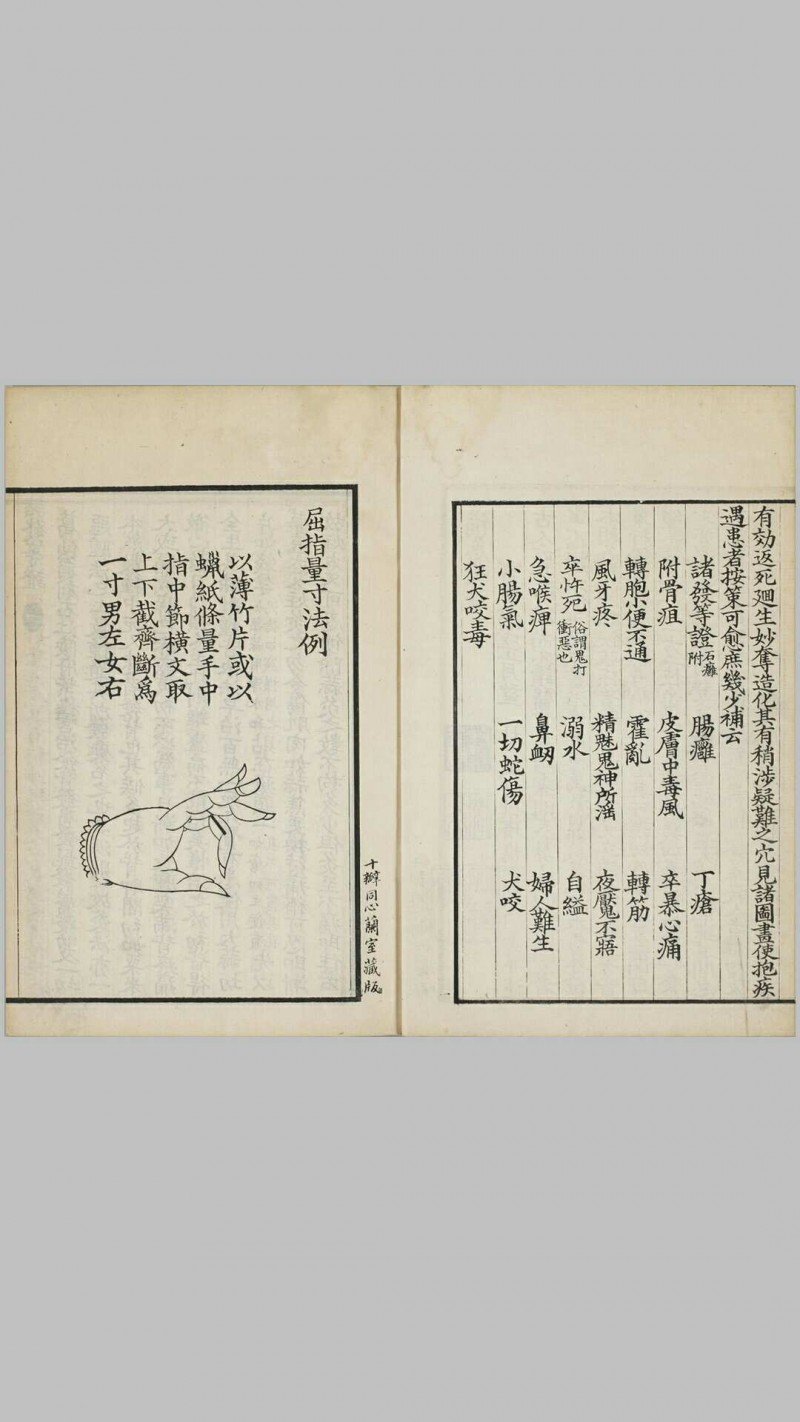 有効返死廻生妙奪造化其有稍渉疑難之穴見諸圖畫使抱疾
遇患者按策可愈庶幾少補云
諸發等證 石癰附 腸癰 丁瘡
附骨疽 皮膚中毒風 卒暴心痛
轉胞小便不通 霍亂 轉筋
風牙疼 精魅鬼神所滛 夜魘不寤
卒忤死 俗謂鬼打衝惡也 溺水 自縊
急喉痺 鼻衂 婦人難生
小腸氣 一切蛇傷 犬咬
狂犬咬毒
十瓣同心蘭室藏版
屈指量寸法例
以薄竹片或以
蠟紙條量手中
指中節橫文取
上下截齊斷爲
一寸男左女右